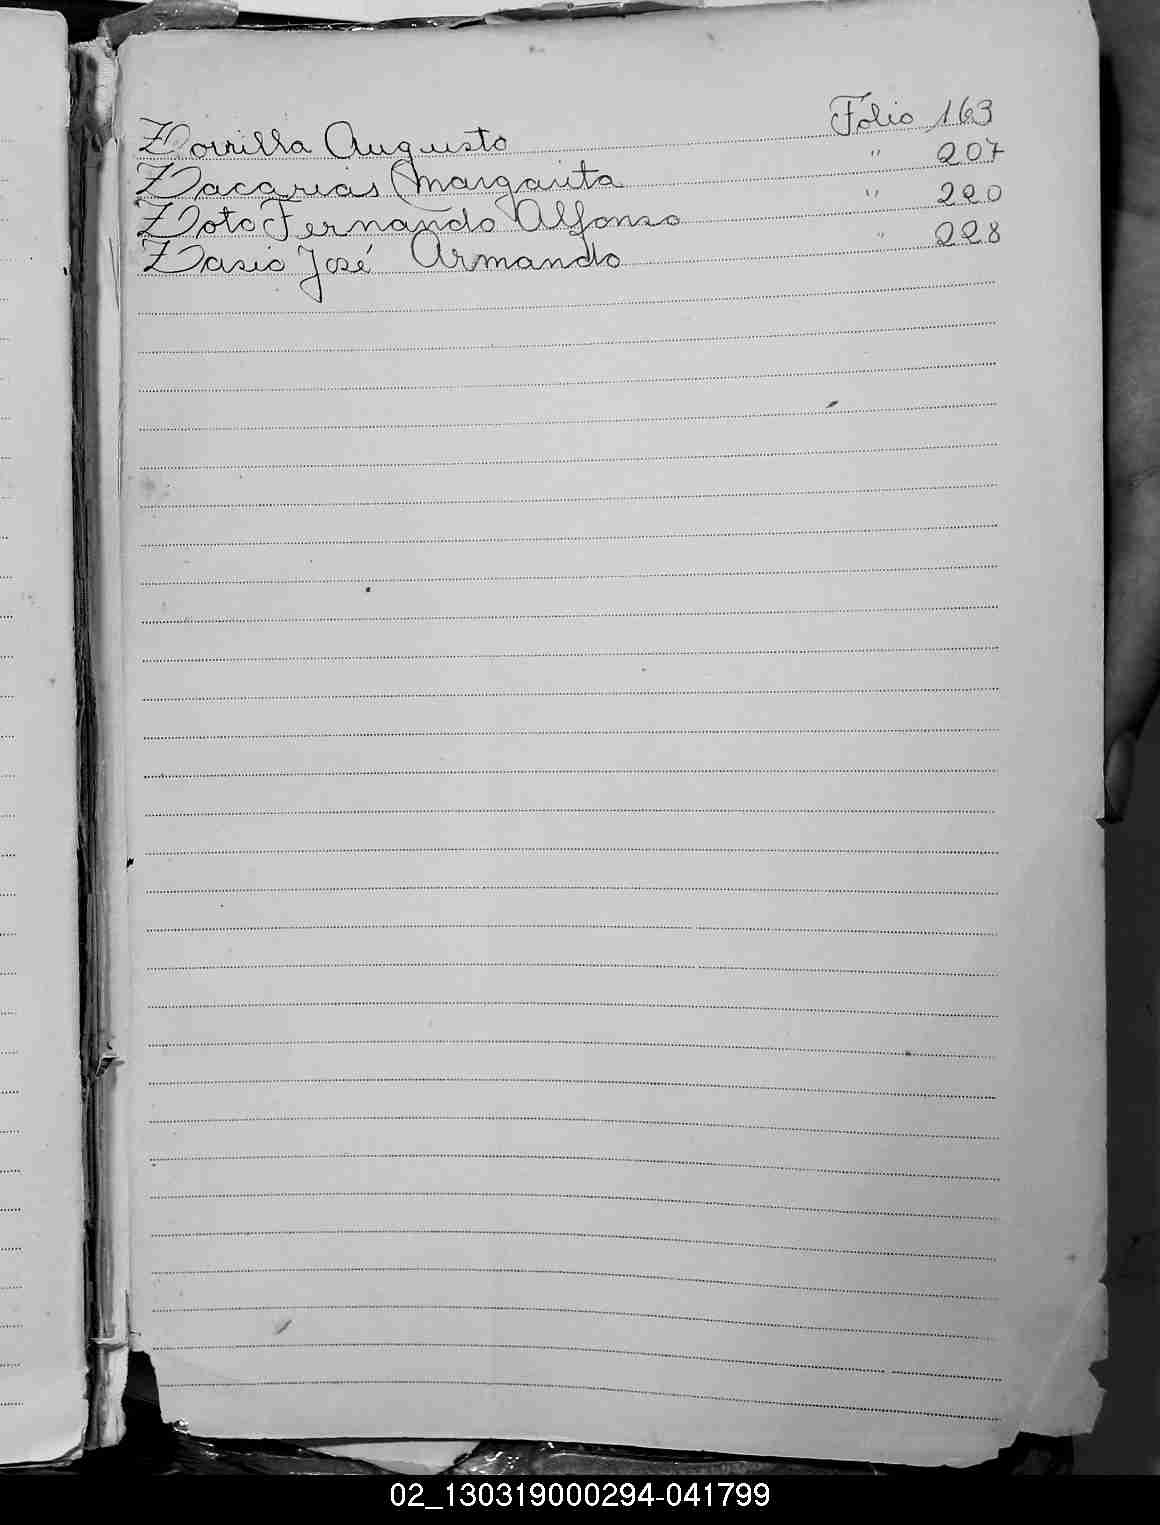 Zorrilla Augusto Folio 163
Zacarias Margarita " 207
Zoto Fernando Alfonso " 220
Zasio José Armando " 228
02_130319000294-041799